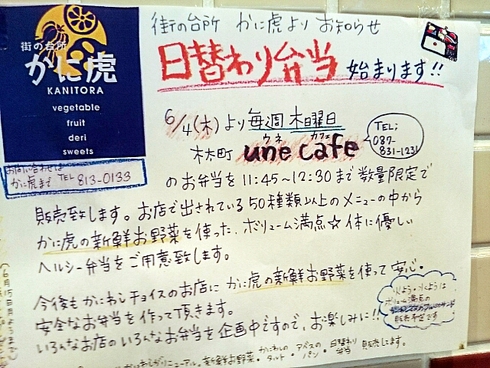 街の台所
かに虎
KANITORA
vegetable
fruit
deri
sweets
お問い合わせは
かに虎まで TEL 813-0133
街の台所 かに虎より お知らせ
日替わり弁当 始まります!!
6/4(木)より毎週木曜日
ウネ カフェ
une cafe
TEL:
087-
831-1231
のお弁当を11:45~12:30まで数量限定で
販売致します。お店で出されている50種類以上のメニューの中から
かに虎の新鮮お野菜を使った、ボリューム満点☆体に優しい
ヘルシー弁当をご用意致します。
今後もかにわしチョイスのお店にかに虎の新鮮お野菜を使って安心、
安全なお弁当を作って頂きます。
いろんなお店のいろんなお弁当を企画中ですので、お楽しみに!!